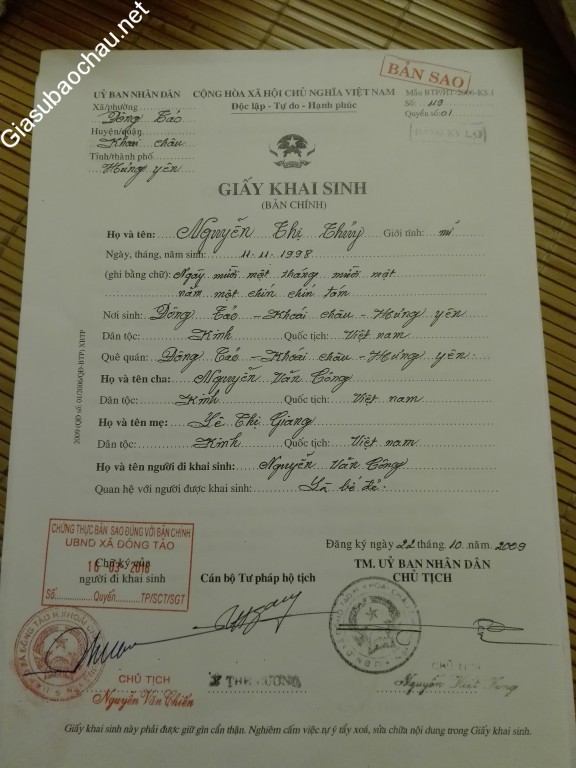 Giasubaochau.net
BẢN SAO
ỦY BAN NHÂN DÂN CỘNG HÒA XÃ HỘI CHỦ NGHĨA VIỆT NAM Mẫu BTP/HT-2006-KS.1
Xã/phường Độc lập - Tự do - Hạnh phúc Số: 119
Đông Tảo Quyển số: 01
Huyện/quận
Khoái châu
Tỉnh/thành phố
Hưng yên
GIẤY KHAI SINH
(BẢN CHÍNH)
Họ và tên: Nguyễn Thị Thủy Giới tính: nữ
Ngày, tháng, năm sinh: 11-11-1998
(ghi bằng chữ): Ngày mười một tháng mười một
năm một chín chín tám
Nơi sinh: Đông Tảo - Khoái châu - Hưng yên
Dân tộc: Kinh Quốc tịch: Việt nam
Quê quán: Đông Tảo - Khoái châu - Hưng yên
Họ và tên cha: Nguyễn Văn Công
Dân tộc: Kinh Quốc tịch: Việt nam
Họ và tên mẹ: Lê Thị Giang
Dân tộc: Kinh Quốc tịch: Việt nam
Họ và tên người đi khai sinh: Nguyễn Văn Công
Quan hệ với người được khai sinh: Là bố đẻ
2009 (QĐ số: 01/2006/QĐ-BTP) XBTP
Đăng ký ngày 22 tháng 10 năm 2009
CHỨNG THỰC BẢN SAO ĐÚNG VỚI BẢN CHÍNH
UBND XÃ ĐÔNG TẢO
Chữ ký của
người đi khai sinh
Số Quyển TP/SCT/SGT
Cán bộ Tư pháp hộ tịch
TM. UỶ BAN NHÂN DÂN
CHỦ TỊCH
CHỦ TỊCH
Nguyễn Văn Chiến
CHỦ TỊCH
Nguyễn Việt
Giấy khai sinh này phải được giữ gìn cẩn thận. Nghiêm cấm việc tự ý tẩy xoá, sửa chữa nội dung trong Giấy khai sinh.